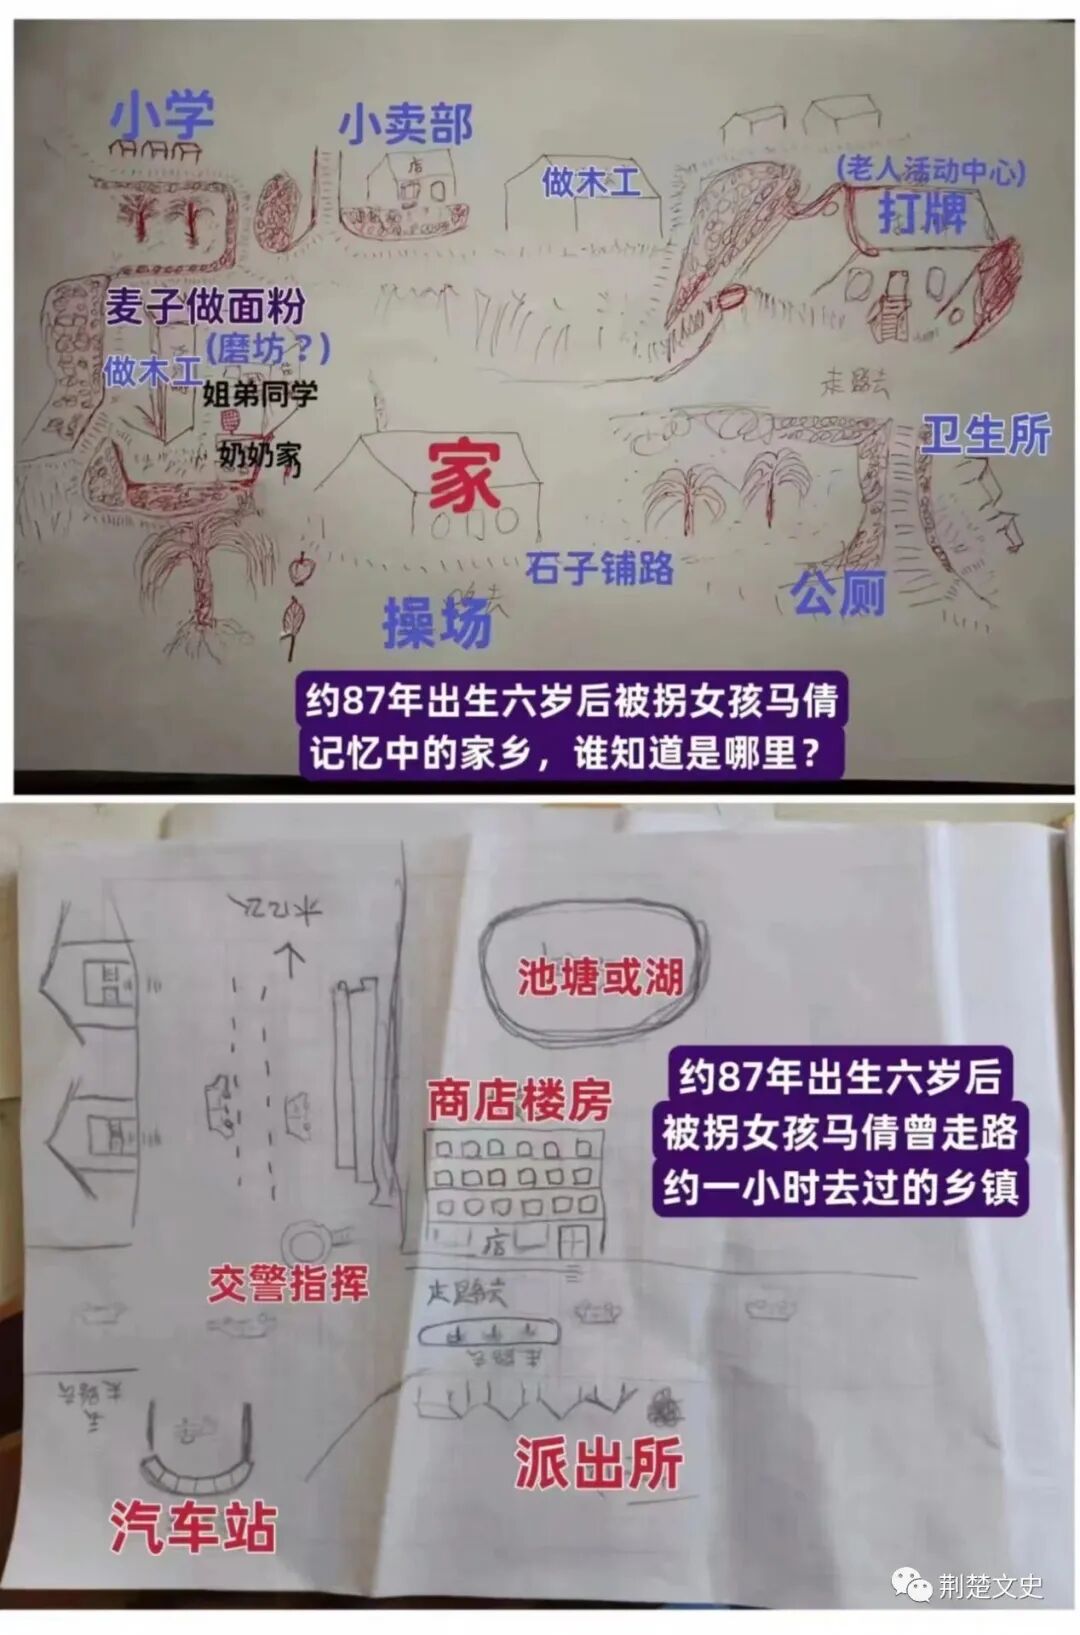 小学
小卖部
店
做木工
(老人活动中心)
打牌
麦子做面粉
(磨坊？)
做木工
姐弟同学
奶奶家
走路去
卫生所
家
石子铺路
公厕
操场
路去
约87年出生六岁后被拐女孩马倩
记忆中的家乡，谁知道是哪里？
池塘或湖
商店楼房
约87年出生六岁后
被拐女孩马倩曾走路
约一小时去过的乡镇
店
交警指挥
走路去
走路去
走路去
派出所
汽车站
荆楚文史